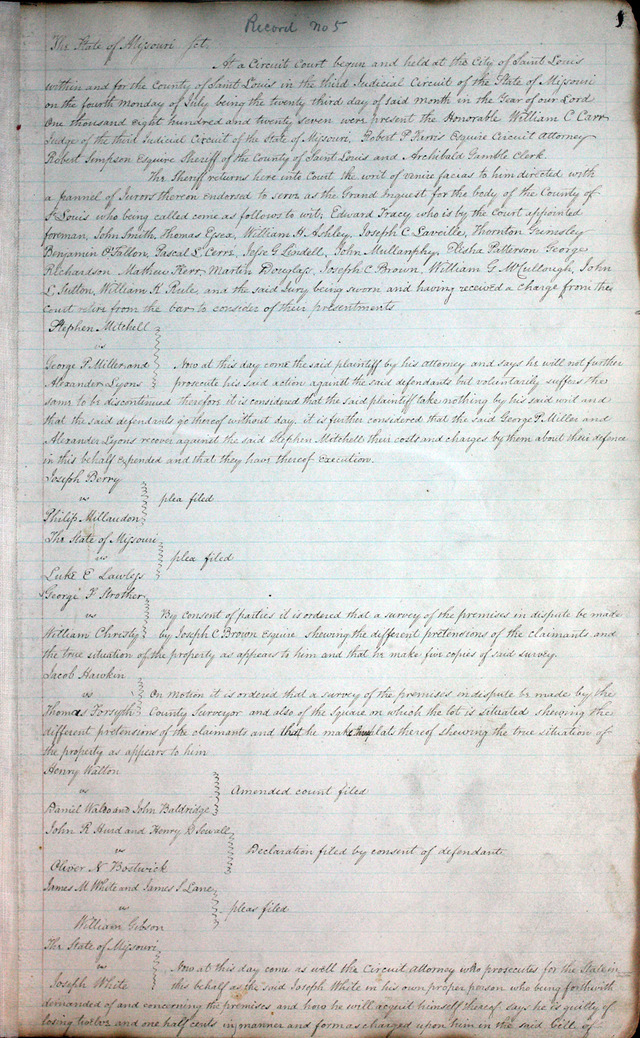 Record No 5
1
The State of Missouri Sct.
At a Circuit Court begun and held at the City of Saint Louis
within and for the County of Saint Louis in the third Judicial Circuit of the State of Missouri
on the fourth Monday of July being the twenty third day of said month in the Year of our Lord
One thousand eight hundred and twenty seven were present the Honorable William C Carr
Judge of the third Judicial Circuit of the State of Missouri, Robert P Farris Esquire Circuit Attorney
Robert Simpson Esquire Sheriff of the County of Saint Louis and Archibald Gamble Clerk.
The Sheriff returns here into Court the writ of venire facias to him directed with
a pannel of Jurors thereon endorsed to serve as the Grand Inquest for the body of the County of
St Louis who being called come as follows to wit, Edward Tracy who is by the Court appointed
foreman, John Smith, Thomas Essex, William H Ashley, Joseph C Laveille, Thornton Grimsley
Benjamin O'Fallon, Pascal L Cerré, Jesse G Lindell, John Mullanphy, Elisha Patterson George
Richardson Mathew Kerr Martin Douglass, Joseph C Brown, William G McCullough, John
L Sutton, William K Rule, and the said Jury being sworn and having received a charge from the
court retire from the bar to consider of their presentments
Stephen Mitchell
vs
George P Miller and Now at this day come the said plaintiff by his attorney and says he will not further
Alexander Lyons prosecute his said action against the said defendants but voluntarily suffers the
same to be discontinued therefore it is considered that the said plaintiff take nothing by his said writ and
that the said defendants go thereof without day. it is further considered that the said George P. Miller and
Alexander Lyons recover against the said Stephen Mitchell their costs and charges by them about their defence
in this behalf expended and that they have thereof execution.
Joseph Berry
vs plea filed
Philip Millaudon
The State of Missouri
vs plea filed
Luke E Lawless
George F Strother
vs By consent of parties it is ordered that a survey of the premises in dispute be made
William Christy by Joseph C Brown Esquire shewing the different pretensions of the claimants and
the true situation of the property as appears to him and that he make five copies of said survey.
Jacob Hawkin
vs On motion it is ordered that a survey of the premises in dispute be made by the
Thomas Forsyth County Surveyor and also of the Square on which the lot is situated shewing the
different pretensions of the claimants and that he make plats thereof shewing the true situation of
the property as appears to him
Henry Walton
vs Amended count filed
Daniel Waldo and John Baldridge
John R Hurd and Henry D Sewall
vs Declaration filed by consent of defendant
Oliver N Bostwick
James M White and James S Lane
vs pleas filed
William Gibson
The State of Missouri
vs Now at this day come as well the Circuit Attorney who prosecutes for the State in
Joseph White this behalf as the said Joseph White in his own proper person who being forthwith
demanded of and concerning the premises and how he will acquit himself thereof says he is guilty of
losing twelve and one half cents in manner and form as charged upon him in the said Bill of